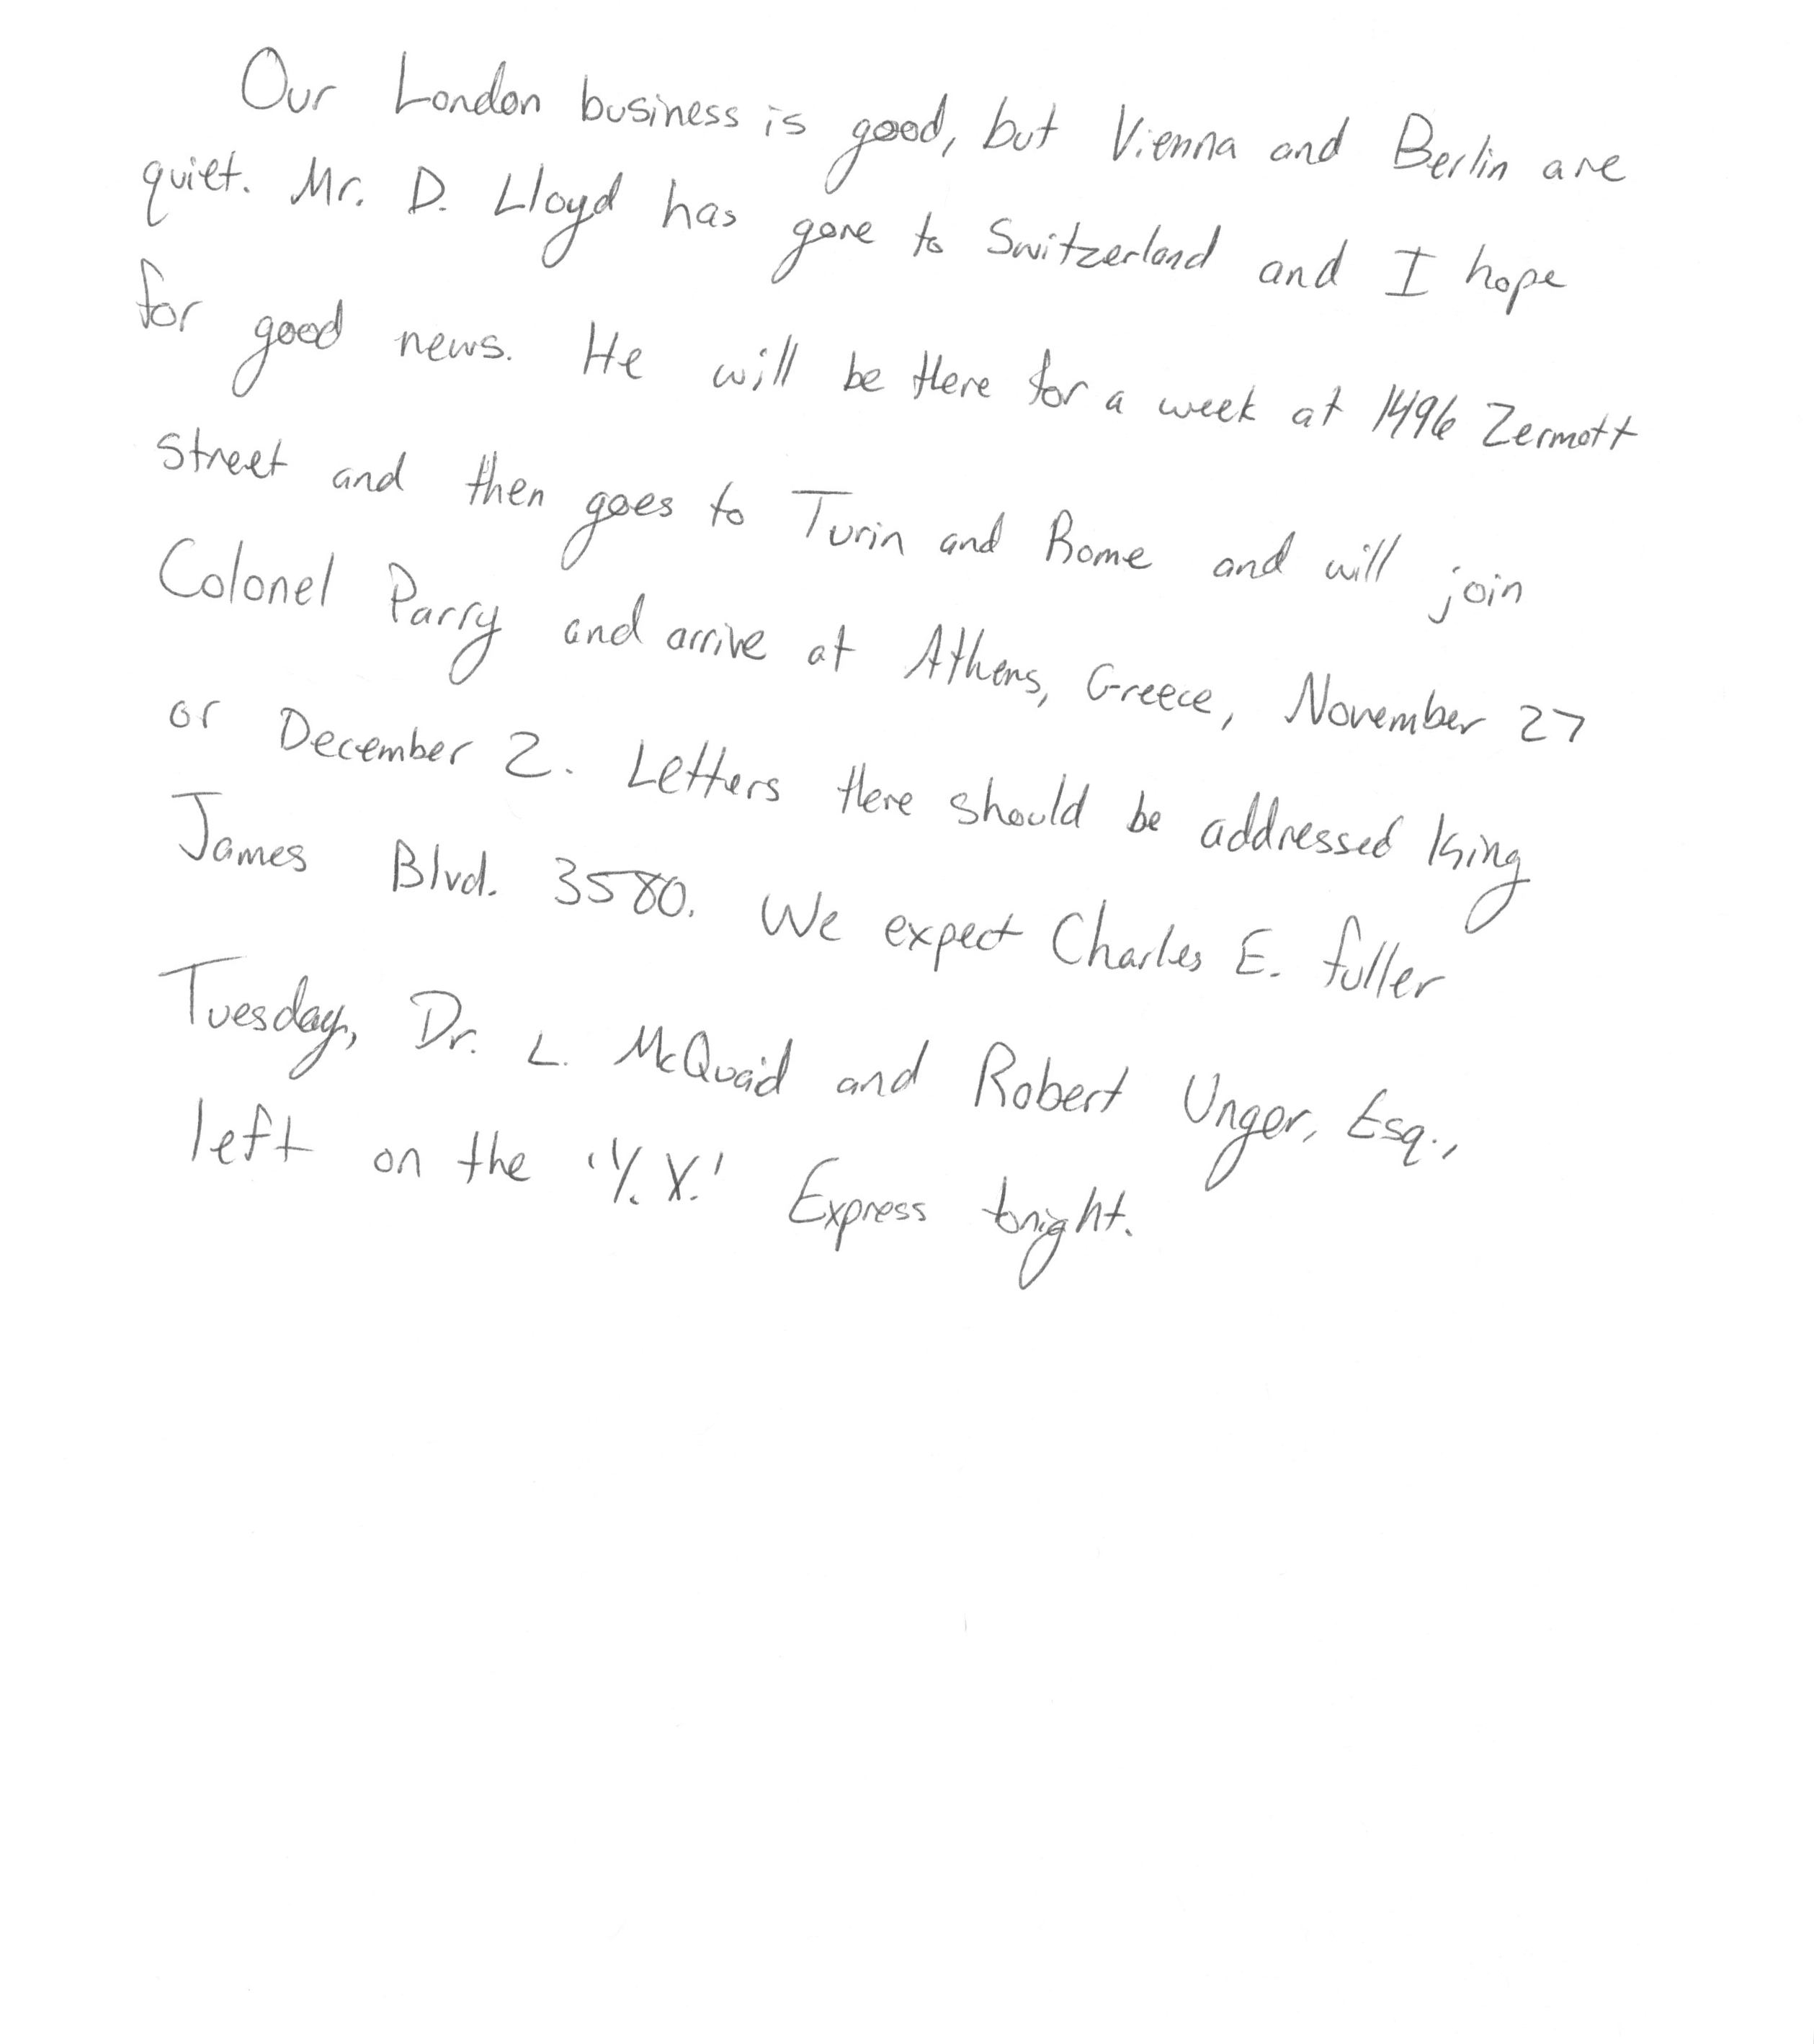 Our London business is good, but Vienna and Berlin are
quiet. Mr. D. Lloyd has gone to Switzerland and I hope
for good news. He will be there for a week at 1496 Zermott
street and then goes to Turin and Rome and will join
Colonel Parry and arrive at Athens, Greece, November 27
or December 2. Letters there should be addressed King
James Blvd. 3580. We expect Charles E. fuller
Tuesday, Dr. L. McQuaid and Robert Unger, Esq.,
left on the 'Y.X.' Express tonight.